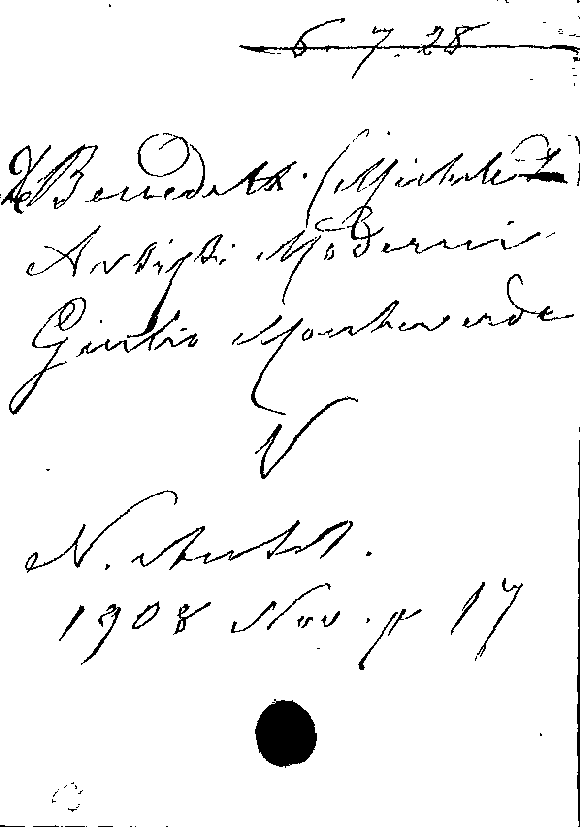 6. 7. 28
De Benedetti (Michele)
Artisti Moderni
Giulio Monteverde
V
N. Antol.
1908 Nov. p 17